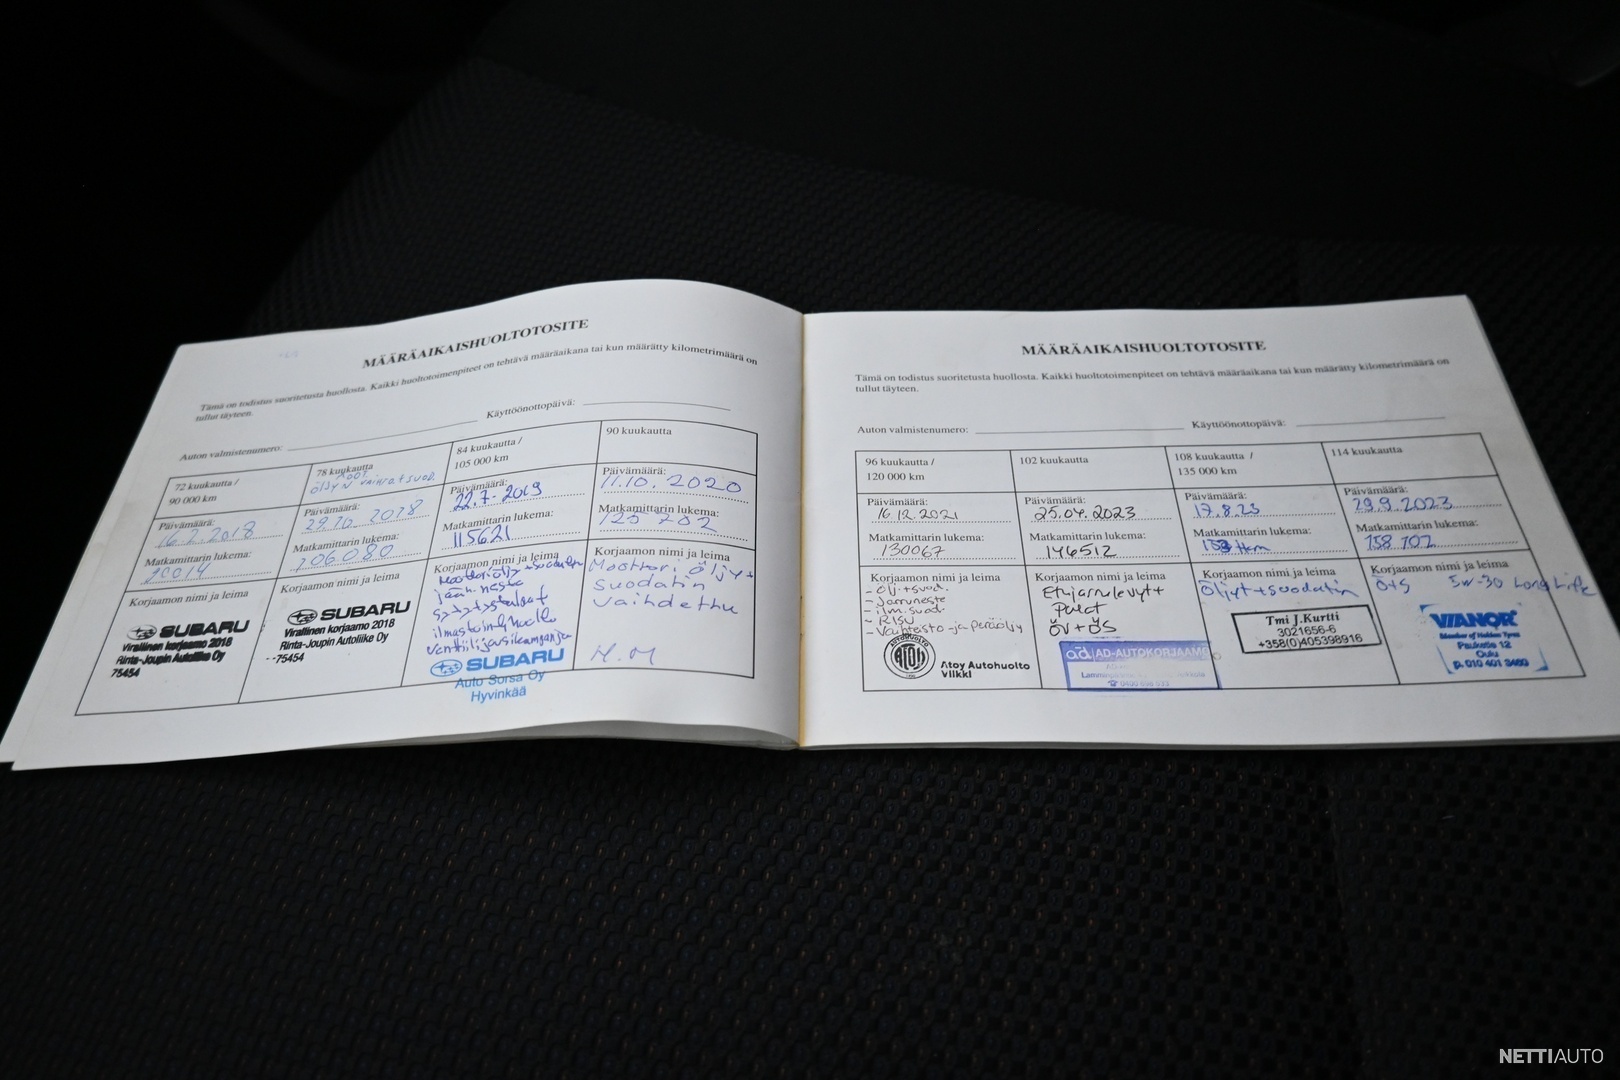 MÄÄRÄAIKAISHUOLTOTOSITE
Tämä on todistus suoritetusta huollosta. Kaikki huoltotoimenpiteet on tehtävä määräaikana tai kun määrätty kilometrimäärä on
tullut täyteen.
Auton valmistenumero: Käyttöönottopäivä:
72 kuukautta /
90 000 km
Päivämäärä:
16.2.2018
Matkamittarin lukema:
90014
Korjaamon nimi ja leima
SUBARU
Virallinen korjaamo 2018
Rinta-Joupin Autoliike Oy
75454
78 kuukautta
öljyn vaihto + suod.
Päivämäärä:
29.10.2018
Matkamittarin lukema:
106080
Korjaamon nimi ja leima
SUBARU
Virallinen korjaamo 2018
Rinta-Joupin Autoliike Oy
-75454
84 kuukautta /
105 000 km
Päivämäärä:
22.7.2019
Matkamittarin lukema:
115621
Korjaamon nimi ja leima
Moottoriöljy + suodatin
jään.neste
sytytystulpat
ilmastointi huolto
SUBARU
Auto Sorsa Oy
Hyvinkää
90 kuukautta
Päivämäärä:
11.10.2020
Matkamittarin lukema:
125 202
Korjaamon nimi ja leima
Moottori öljy +
suodatin
vaihdettu
H.M
MÄÄRÄAIKAISHUOLTOTOSITE
Tämä on todistus suoritetusta huollosta. Kaikki huoltotoimenpiteet on tehtävä määräaikana tai kun määrätty kilometrimäärä on
tullut täyteen.
Auton valmistenumero: Käyttöönottopäivä:
96 kuukautta /
120 000 km
Päivämäärä:
16.12.2021
Matkamittarin lukema:
130067
Korjaamon nimi ja leima
- Ölj.+suod.
- Jarruneste
- ilm.suod.
- Raisu
- Vaihteisto -ja peräöljy
Atoy Autohuolto
Vilkki
102 kuukautta
Päivämäärä:
25.04.2023
Matkamittarin lukema:
146512
Korjaamon nimi ja leima
Etujarrulevyt+
Palat
ÖV+ÖS
ad AD-AUTOKORJAAMO
108 kuukautta /
135 000 km
Päivämäärä:
17.8.23
Matkamittarin lukema:
153 tkm
Korjaamon nimi ja leima
Öljyt+suodatin
Tmi J.Kurtti
3021656-6
+358(0)405398916
114 kuukautta
Päivämäärä:
29.9.2023
Matkamittarin lukema:
158 102
Korjaamon nimi ja leima
Ö+S 5w-30 Long Life
VIANOR
Member of Nokian Tyres
Paulantie 12
Oulu
p. 010 401 3460
NETTIAUTO